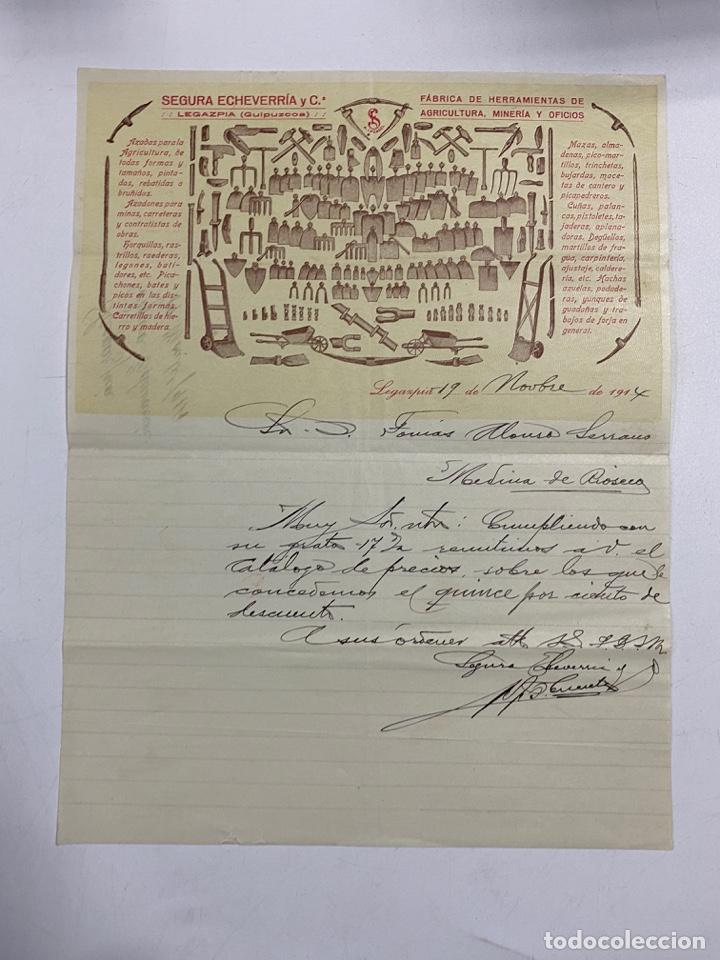 SEGURA ECHEVERRÍA y C.ª
:: LEGAZPIA (Guipuzcoa) ::
S
FÁBRICA DE HERRAMIENTAS DE
AGRICULTURA, MINERÍA Y OFICIOS
Azadas para la
Agricultura, de
todas formas y
tamaños, pinta-
das, rebatidas o
bruñidas.
Azadones para
minas, carreteras
y contratistas de
obras.
Horquillas, ras-
trillos, raederas,
legones, bati-
dores, etc. Pica-
chones, bates y
picos en las dis-
tintas formas.
Carretillas de hie-
rro y madera.
Mazas, alma-
denas, pico-mar-
tillos, trinchetas,
bujardas, mace-
tas de cantero y
picapedreros.
Cuñas, palan-
cas, pistoletes, ta-
jaderas, aplana-
doras. Degüellos,
martillos de fra-
gua, carpintería,
ajustaje, caldere-
ría, etc. Hachas
azuelas, podade-
ras, yunques de
guadañas y tra-
bajos de forja en
general.
Legazpia 19 de Novbre de 1914
Sr. D. Tomás Alonso Serrano
Medina de Rioseco
Muy Sr. ntro: Cumpliendo con
su grata 17 remitimos a V. el
catálogo de precios, sobre los que le
concedemos el quince por ciento de
descuento.
A sus órdenes att. S.S. q. b. s. m.
Segura Echeverria y
todocoleccion
todocoleccion.net